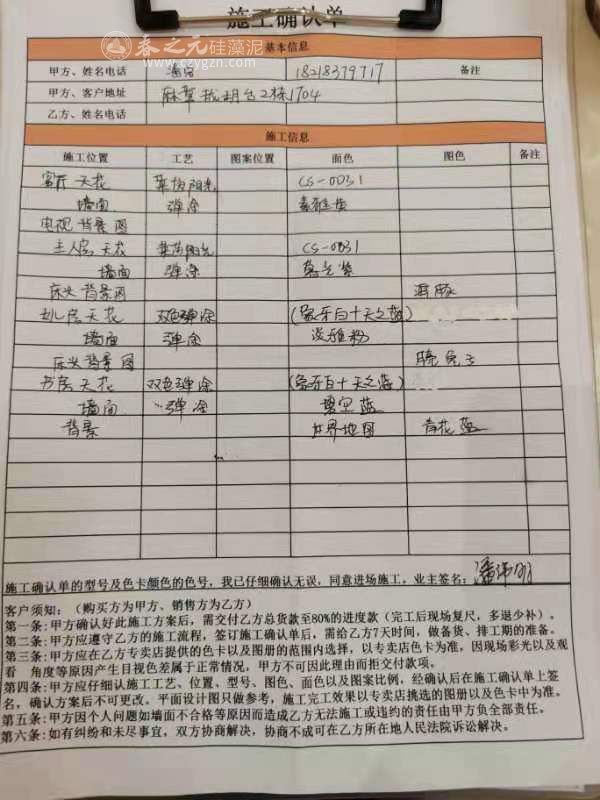 施工确认单
春之元硅藻泥
www.czygzn.com
基本信息
甲方、姓名电话 18218379717 备注
甲方、客户地址 2栋1704
乙方、姓名电话
施工信息
施工位置 工艺 图案位置 面色 图色 备注
客厅 天花 CS-0031
墙面 弹涂
电视 背景 图
主人房 天花 CS-0031
墙面 弹涂
床头 背景图 海豚
女儿房 天花 双色弹涂 (象牙白+天之蓝)
墙面 弹涂 淡雅粉
床头 背景 图
书房 天花 双色弹涂 (象牙白+天之蓝)
墙面 弹涂 碧空蓝
背景 世界地图 青花蓝
施工确认单的型号及色卡颜色的色号，我已仔细确认无误，同意进场施工，业主签名：
客户须知：（购买方为甲方、销售方为乙方）
第一条：甲方确认好此施工方案后，需交付乙方总货款至80%的进度款（完工后现场复尺，多退少补）。
第二条：甲方应遵守乙方的施工流程，签订施工确认单后，需给乙方7天时间，做备货、排工期的准备。
第三条：甲方应在乙方专卖店提供的色卡以及图册的范围内选择，以专卖店色卡为准，因现场彩光以及观
看 角度等原因产生目视色差属于正常情况，甲方不可因此理由而拒交付款项。
第四条：甲方应仔细认施工工艺、位置、型号、图色、面色以及图案比例，经确认后在施工确认单上签
名，确认方案后不可更改。平面设计图只做参考，施工完工效果以专卖店挑选的图册以及色卡中为准。
第五条：甲方因个人问题如墙面不合格等原因而造成乙方无法施工或违约的责任由甲方负全部责任。
第六条：如有纠纷和未尽事宜，双方协商解决，协商不成可在乙方所在地人民法院诉讼解决。